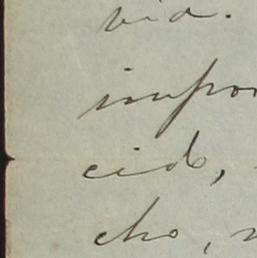 vid.
impor
cido,
cho,